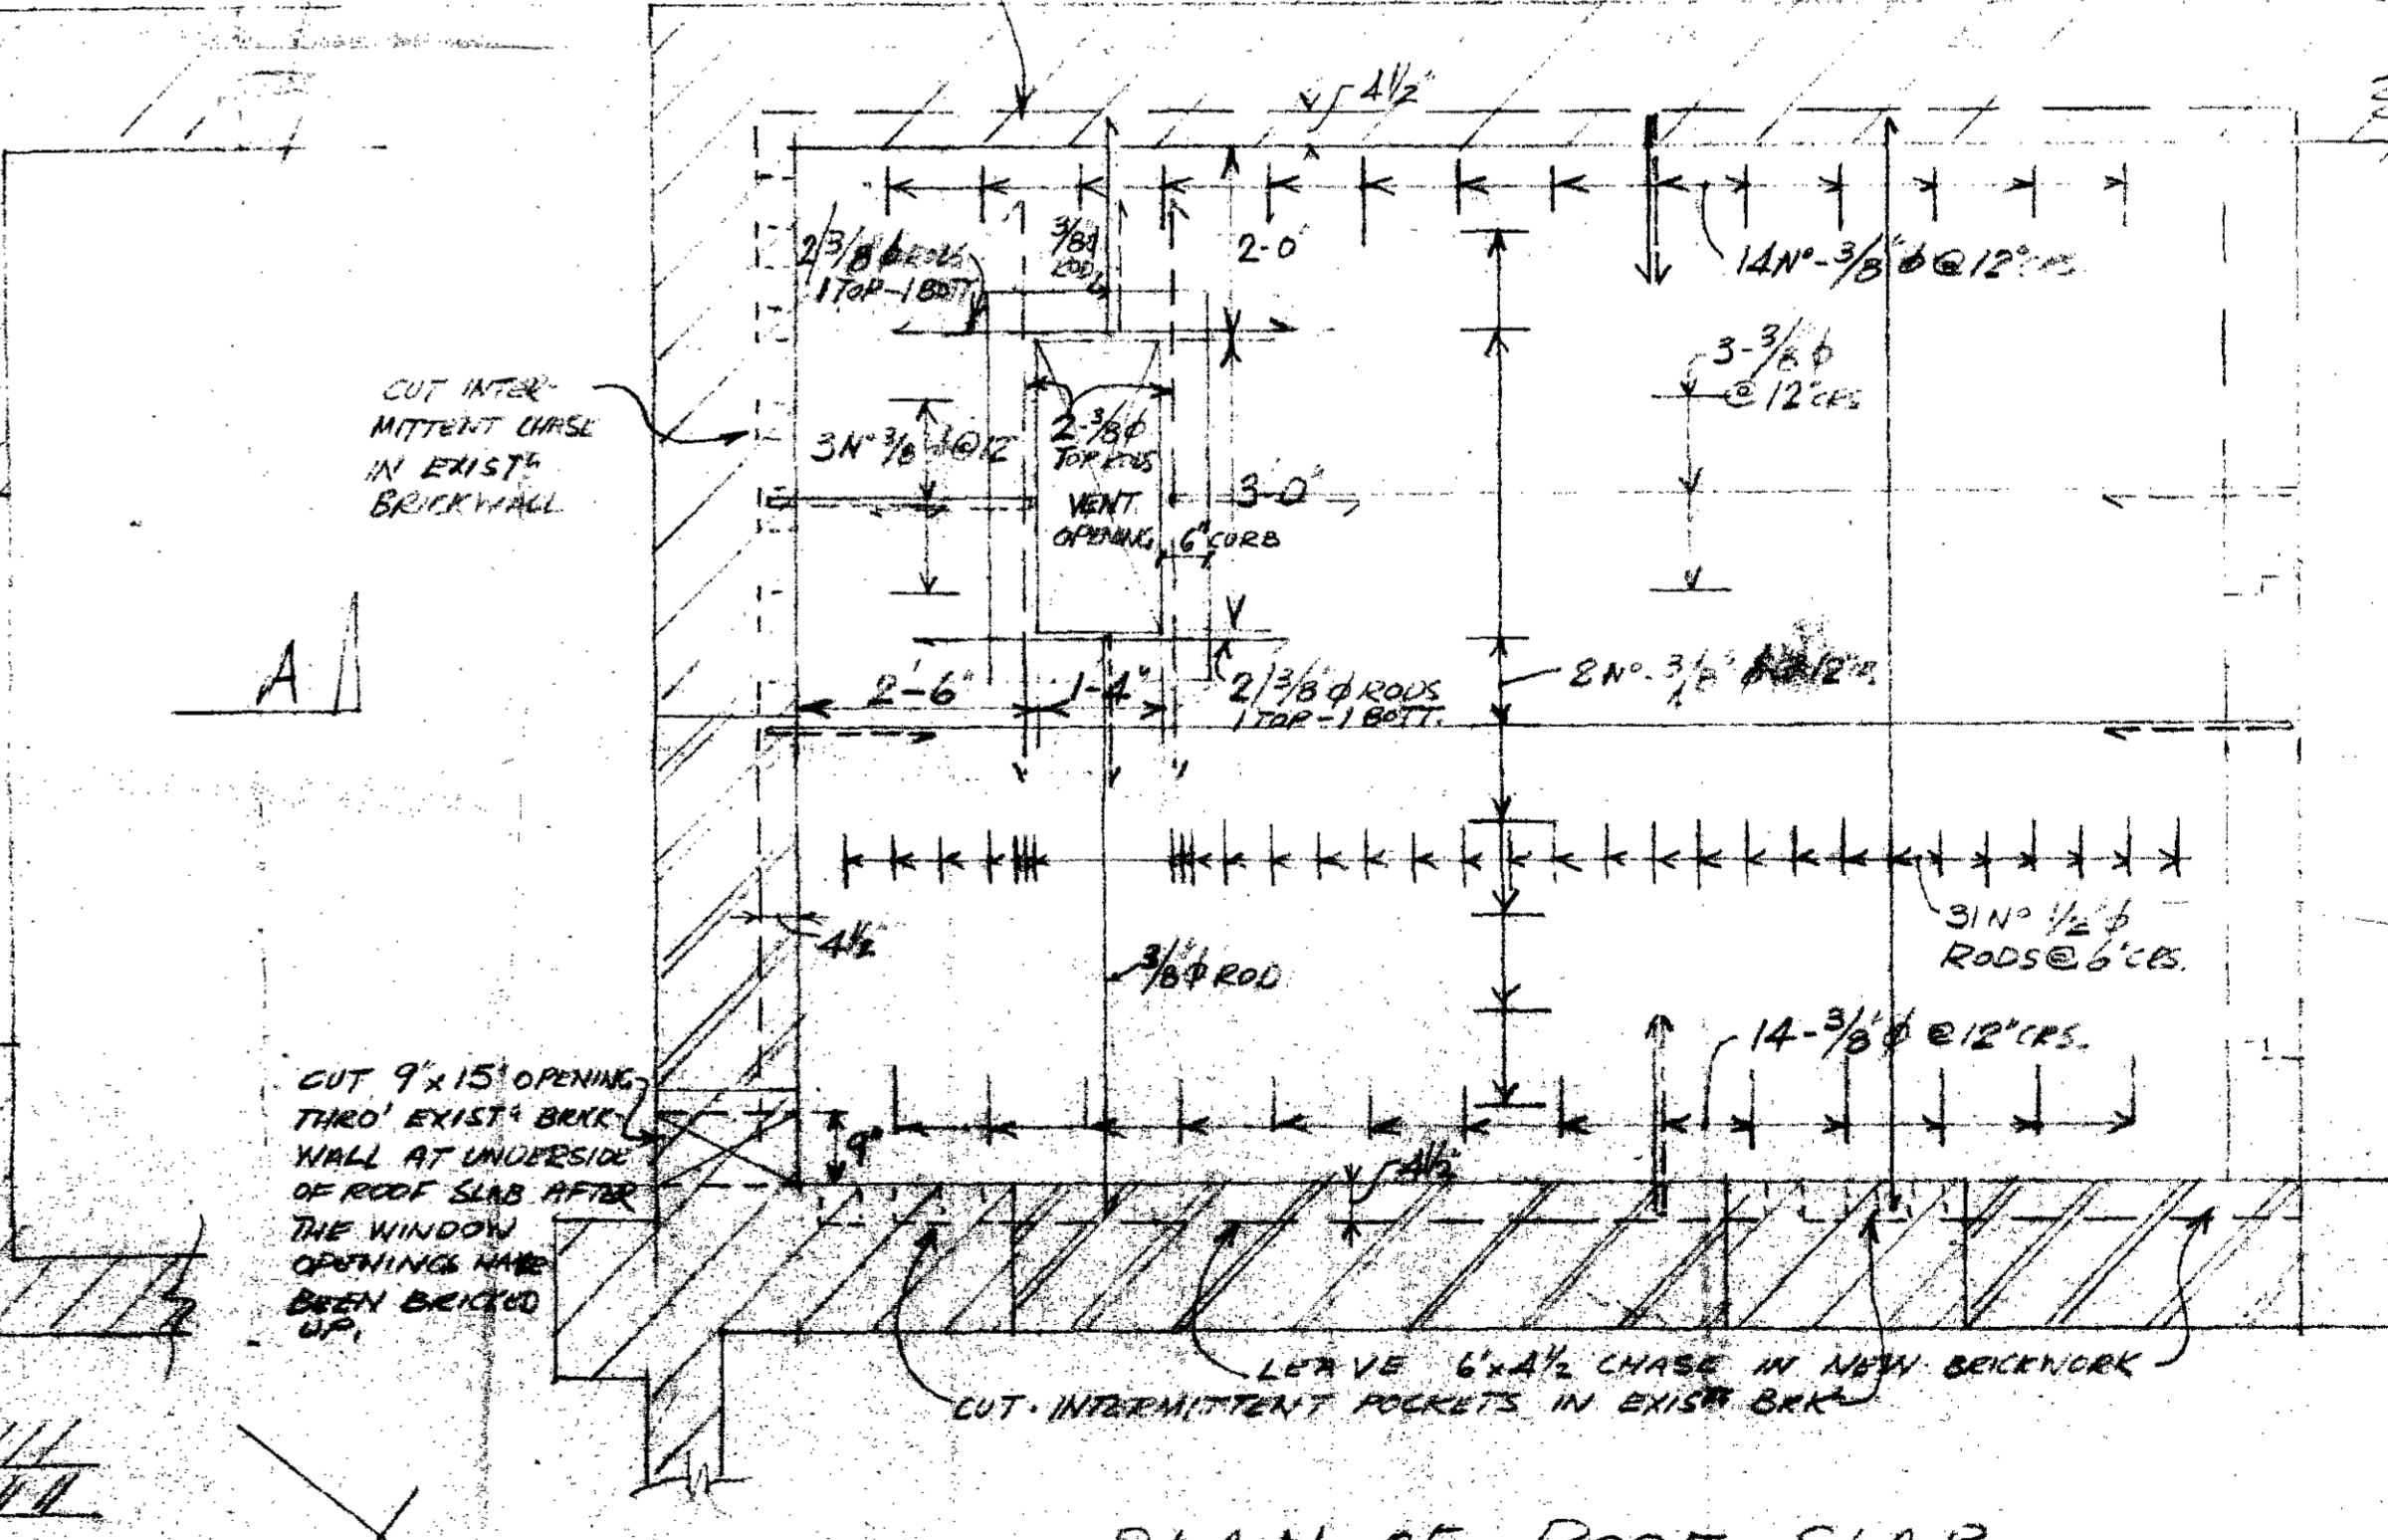 4½"
2/3/8" ϕ RODS
1 TOP-1 BOTT.
3/8"ϕ
ROD
2'-0"
14 Nº-3/8" ϕ @ 12" CRS.
3-3/8 ϕ
@ 12" CRS
CUT INTER-
MITTENT CHASE
IN EXIST.G
BRICKWALL
3 Nº 3/8" ϕ @ 12
2-3/8 ϕ
TOP RODS
VENT.
OPENING
3'-0"
6" CURB
A
2'-6"
1'-4"
2/3/8" ϕ RODS
1 TOP-1 BOTT.
Nº-3/8"
4½"
3/8" ϕ ROD
31 Nº ½" ϕ
RODS @ 6" CRS.
14-3/8" ϕ @ 12" CRS.
CUT 9"x15" OPENING
THRO' EXIST.G BRICK-
WALL AT UNDERSIDE
OF ROOF SLAB AFTER
THE WINDOW
OPENINGS HAVE
BEEN BRICKED
UP.
9"
4½"
LEAVE 6"x4½ CHASE IN NEW BRICKWORK
CUT INTERMITTENT POCKETS IN EXIST.G BRK
PLAN OF ROOF SLAB